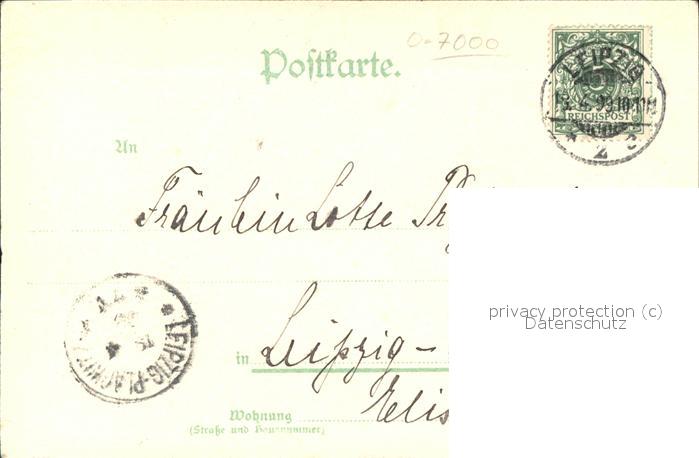 0-7000
Postkarte.
LEIPZIG
REICHSPOST
2
An
Fräulein Lotte
privacy protection (c)
Datenschutz
LEIPZIG-PLAGWITZ
in Leipzig-
Wohnung
(Straße und Hausnummer)